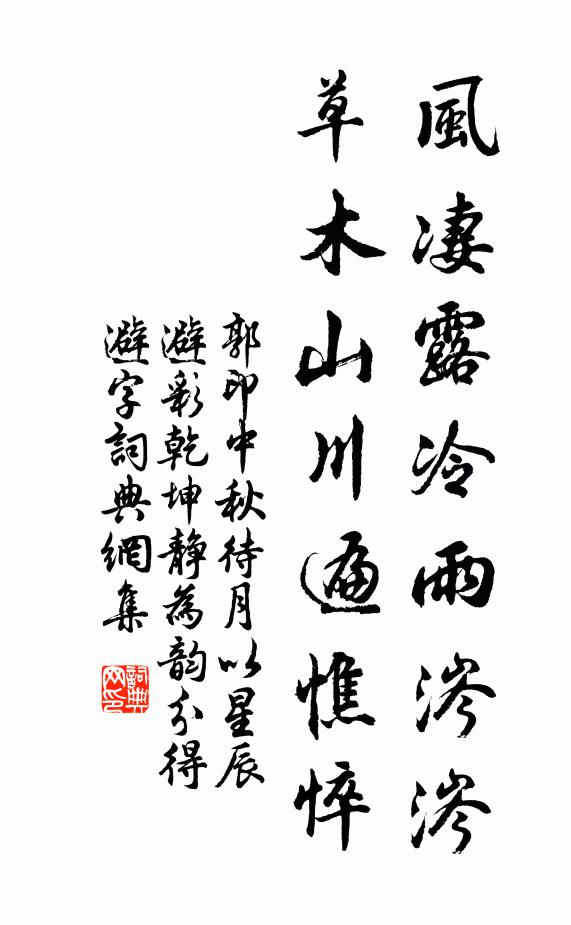 風凄露冷雨涔涔
草木山川遍憔悴
郭印中秋待月以星辰
避彩乾坤靜為韵分得
避字詞典網集
詞典
网印